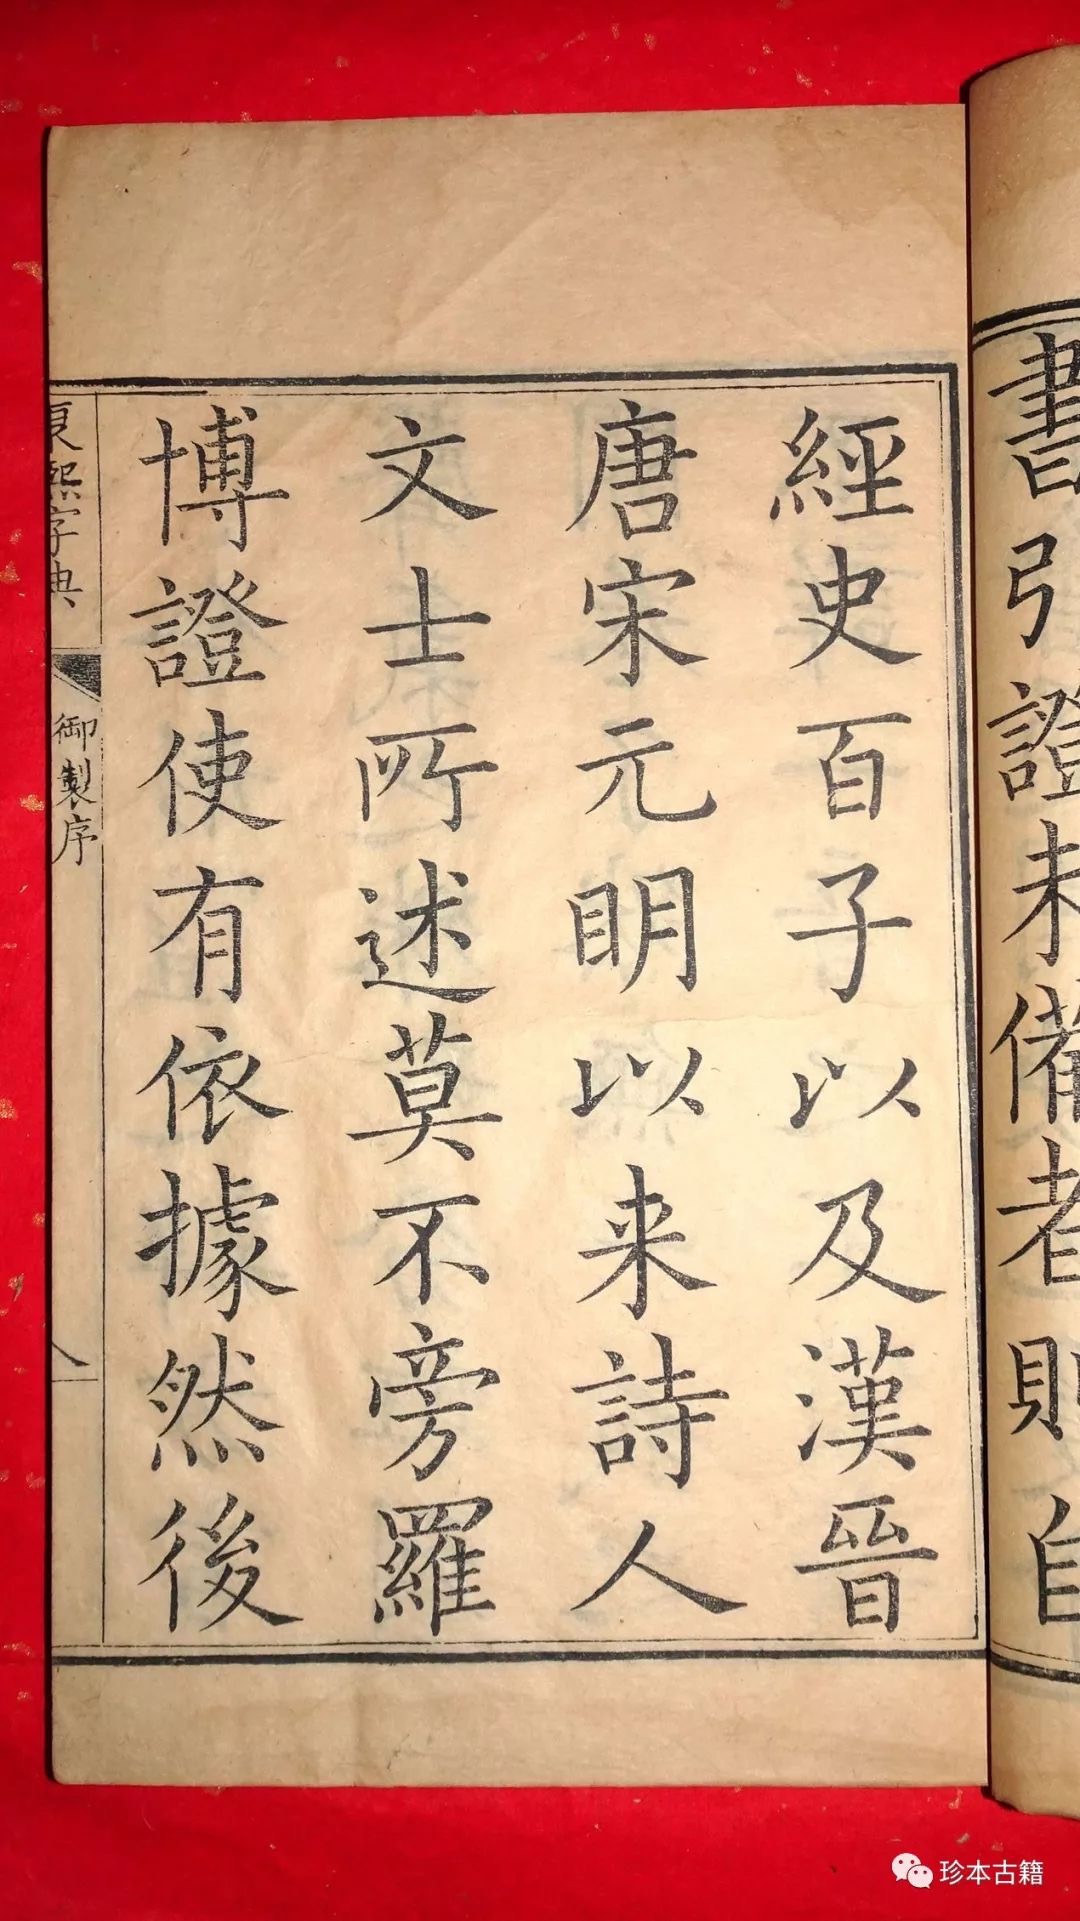 書引證未備者則自
經史百子以及漢晉
唐宋元明以来詩人
文士所述莫不旁羅
博證使有依據然後
康熙字典
御製序
八
珍本古籍